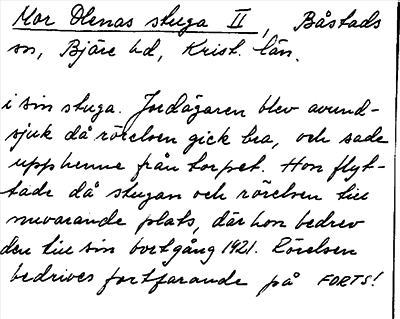 Mor Olenas stuga II, Båstads
sn, Bjäre hd, Krist. län.
i sin stuga. Jordägaren blev avund-
sjuk då rörelsen gick bra, och sade
upp henne från torpet. Hon flyt-
tade då stugan och rörelsen till
nuvarande plats, där hon bedrev
den till sin bortgång 1921. Rörelsen
bedrives fortfarande på FORTS!